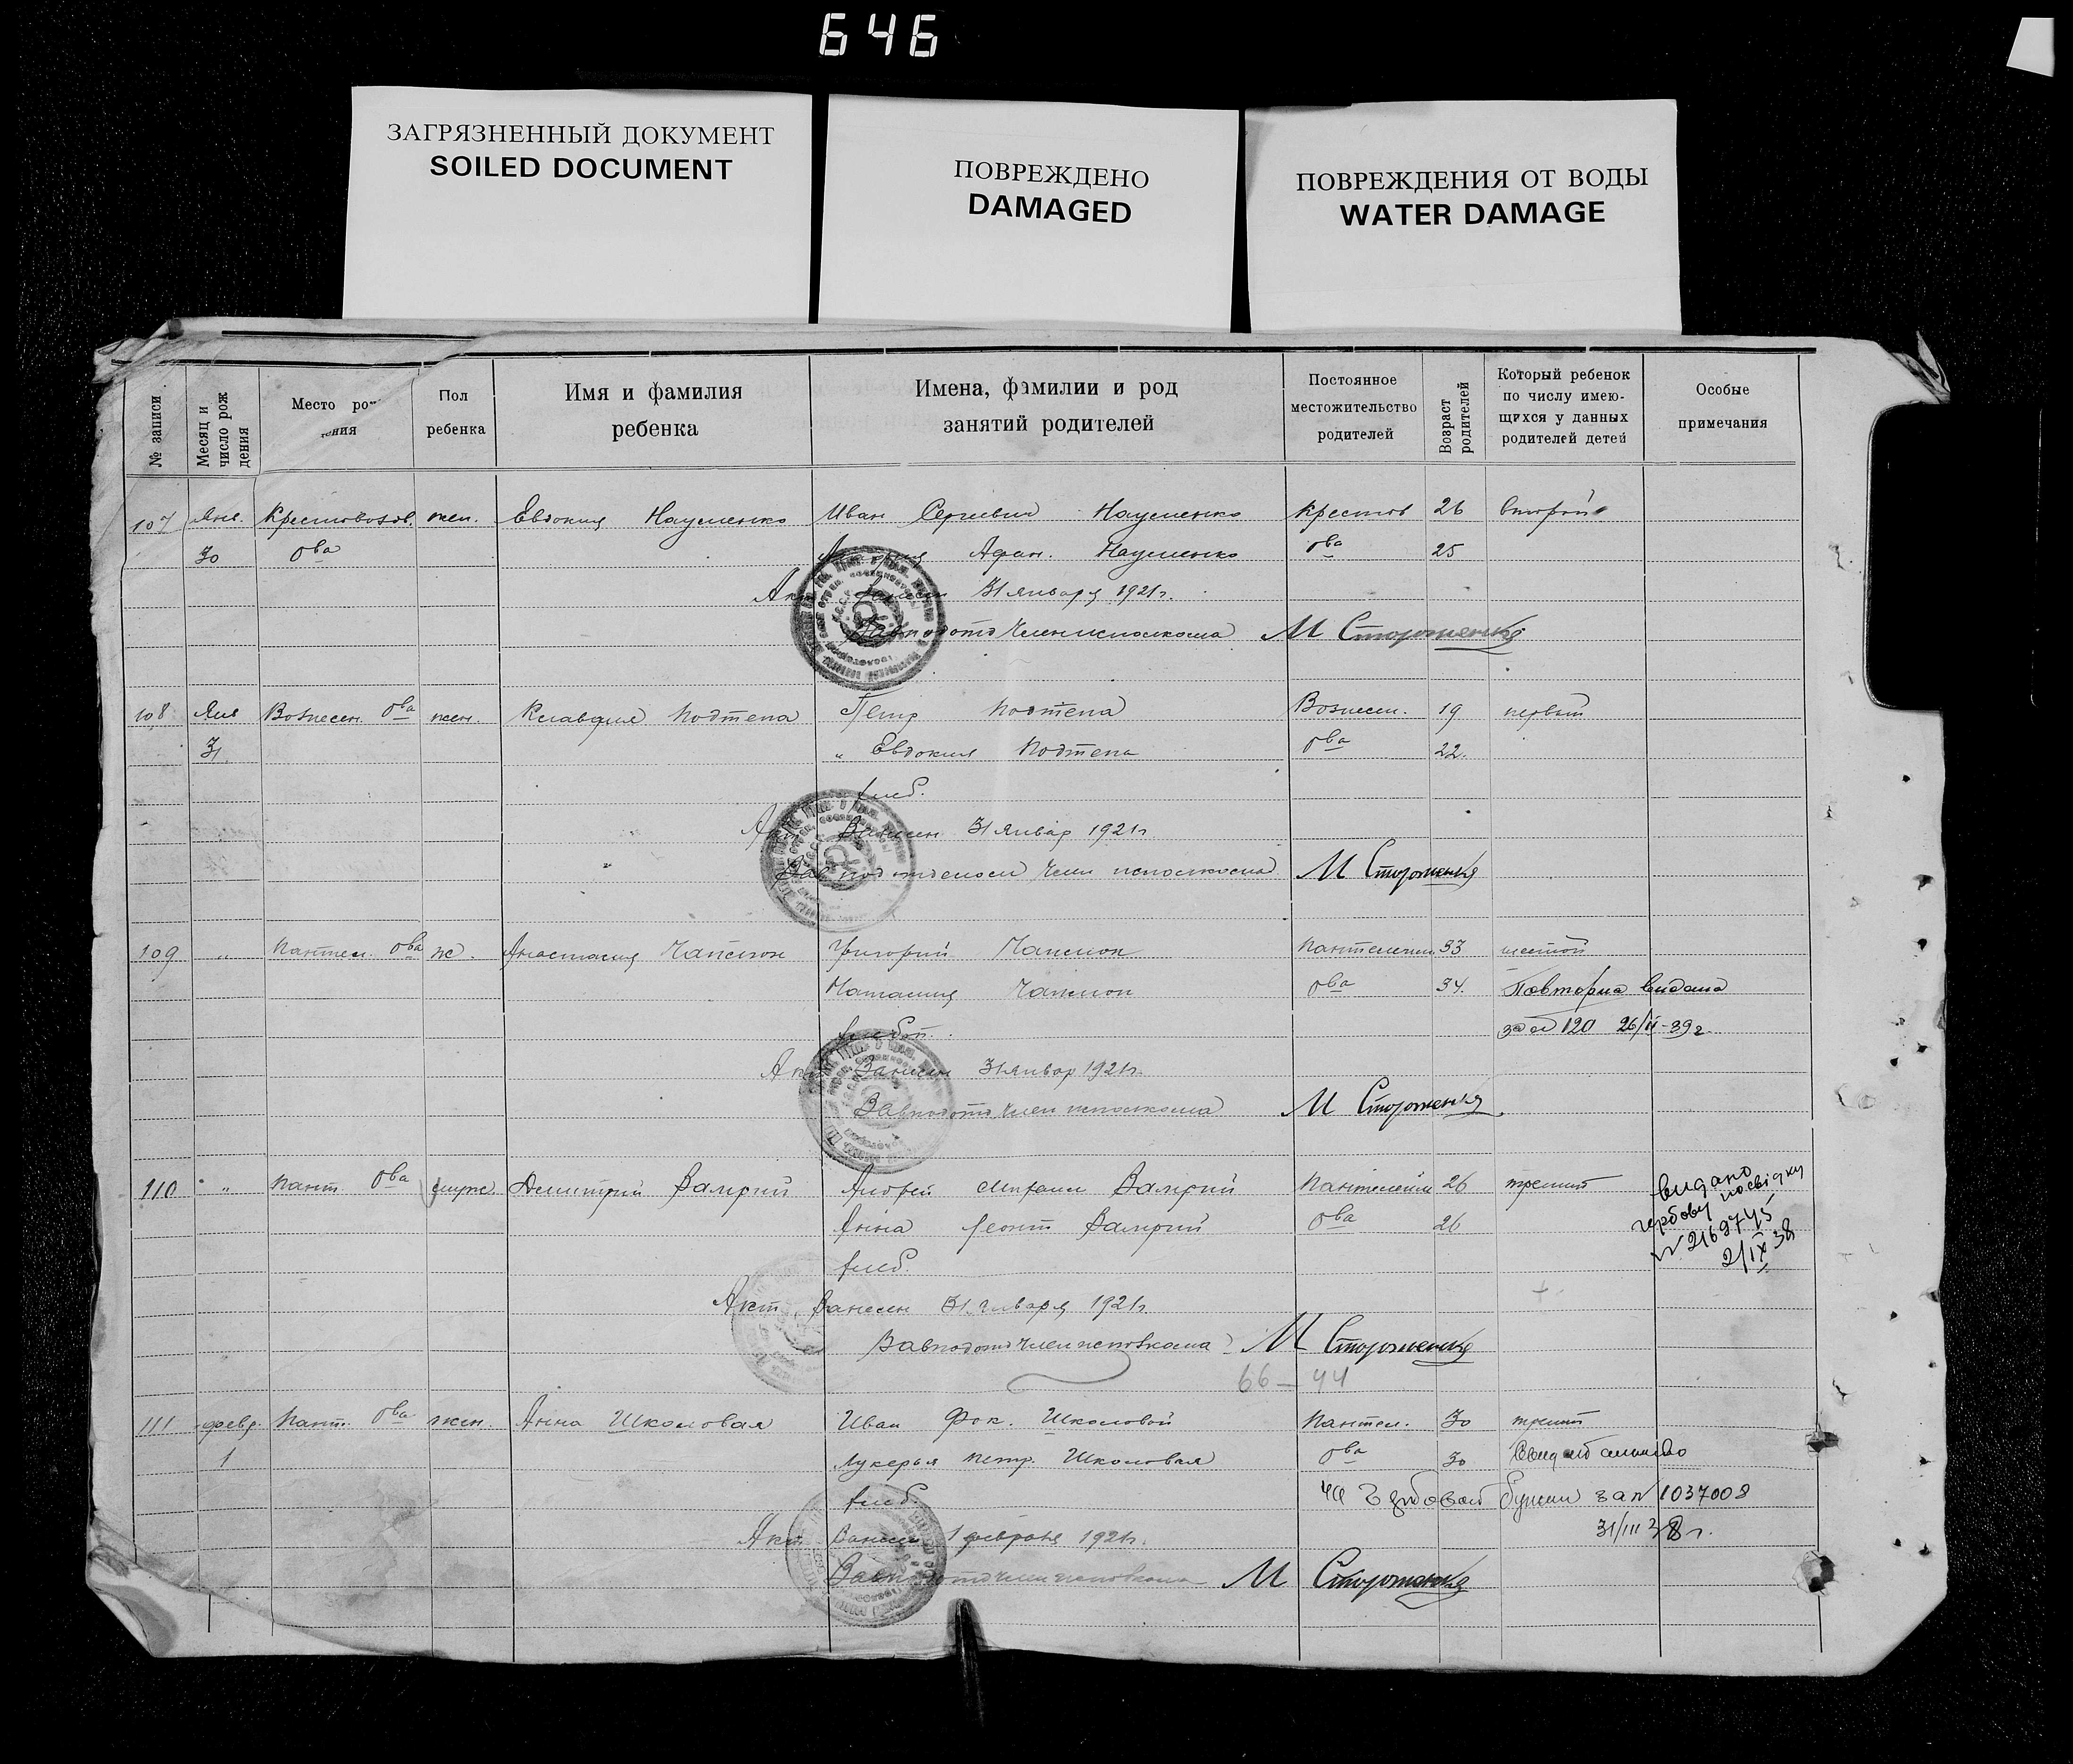 646
ЗАГРЯЗНЕННЫЙ ДОКУМЕНТ
SOILED DOCUMENT
ПОВРЕЖДЕНО
DAMAGED
ПОВРЕЖДЕНИЯ ОТ ВОДЫ
WATER DAMAGE
№ записи
Месяц и число рождения
Место
Пол ребенка
Имя и фамилия ребенка
Имена, фамилии и род занятий родителей
Постоянное местожительство родителей
Возраст родителей
Который ребенок по числу имеющихся у данных родителей детей
Особые примечания
107 Янв. Крестовоздв. жен. Евдокия Науменко Иван Сергиевич Науменко Крестов 26 второй
30 ова Афан. Науменко ова 25
Акт 31 января 1921 г.
Завподотд член исполкома М Стороженко
108 Янв Вознесен. ова жен. Клавдия Подтепа Петр Подтепа Вознесен. 19 первый
31 " Евдокия Подтепа ова 22.
хлеб.
Акт Записан 31 Январ 1921 г
Завподотделом член исполкома М Стороженко
109 " Пантел. ова ж. Анастасия Григорий 33 шестой
Наталия ова 34. Повторна видана
за № 120 26/II-39 г.
Акт Записан 31 Январ 1921 г.
Завподотд член исполкома М Стороженко
110 " Пант. ова муж Димитрий Андрей 26 третий
Анна Леонт ова 26
хлеб.
видано
гербову посвідку
№ 2169745
2/IX 38
Акт Записан 31 Января 1921 г.
Завподотд член исполкома М Стороженко
66 — 44
111 февр. Пант. ова жен. Анна Школовая Иван Фок. Школовой Пантел. 30 третий
1 Лукерья Петр. Школовая ова 30
хлеб. за № 1037008
31/III 38 г.
Акт Записан 1 февраля 1921 г.
Завподотд член исполкома М Стороженко